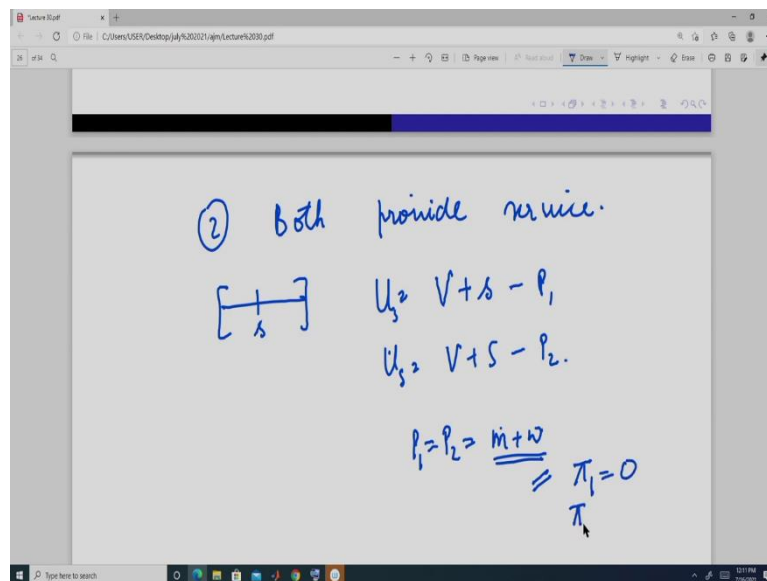 Lecture 30.pdf
File | C:/Users/USER/Desktop/july%202021/ajm/Lecture%2030.pdf
26 of 34
Page view | Read aloud | Draw Highlight Erase
② Both provide service.
s
U_s = V + s - P_1
U_s = V + s - P_2.
P_1 = P_2 = m + w
π_1 = 0
π
Type here to search
12:11 PM